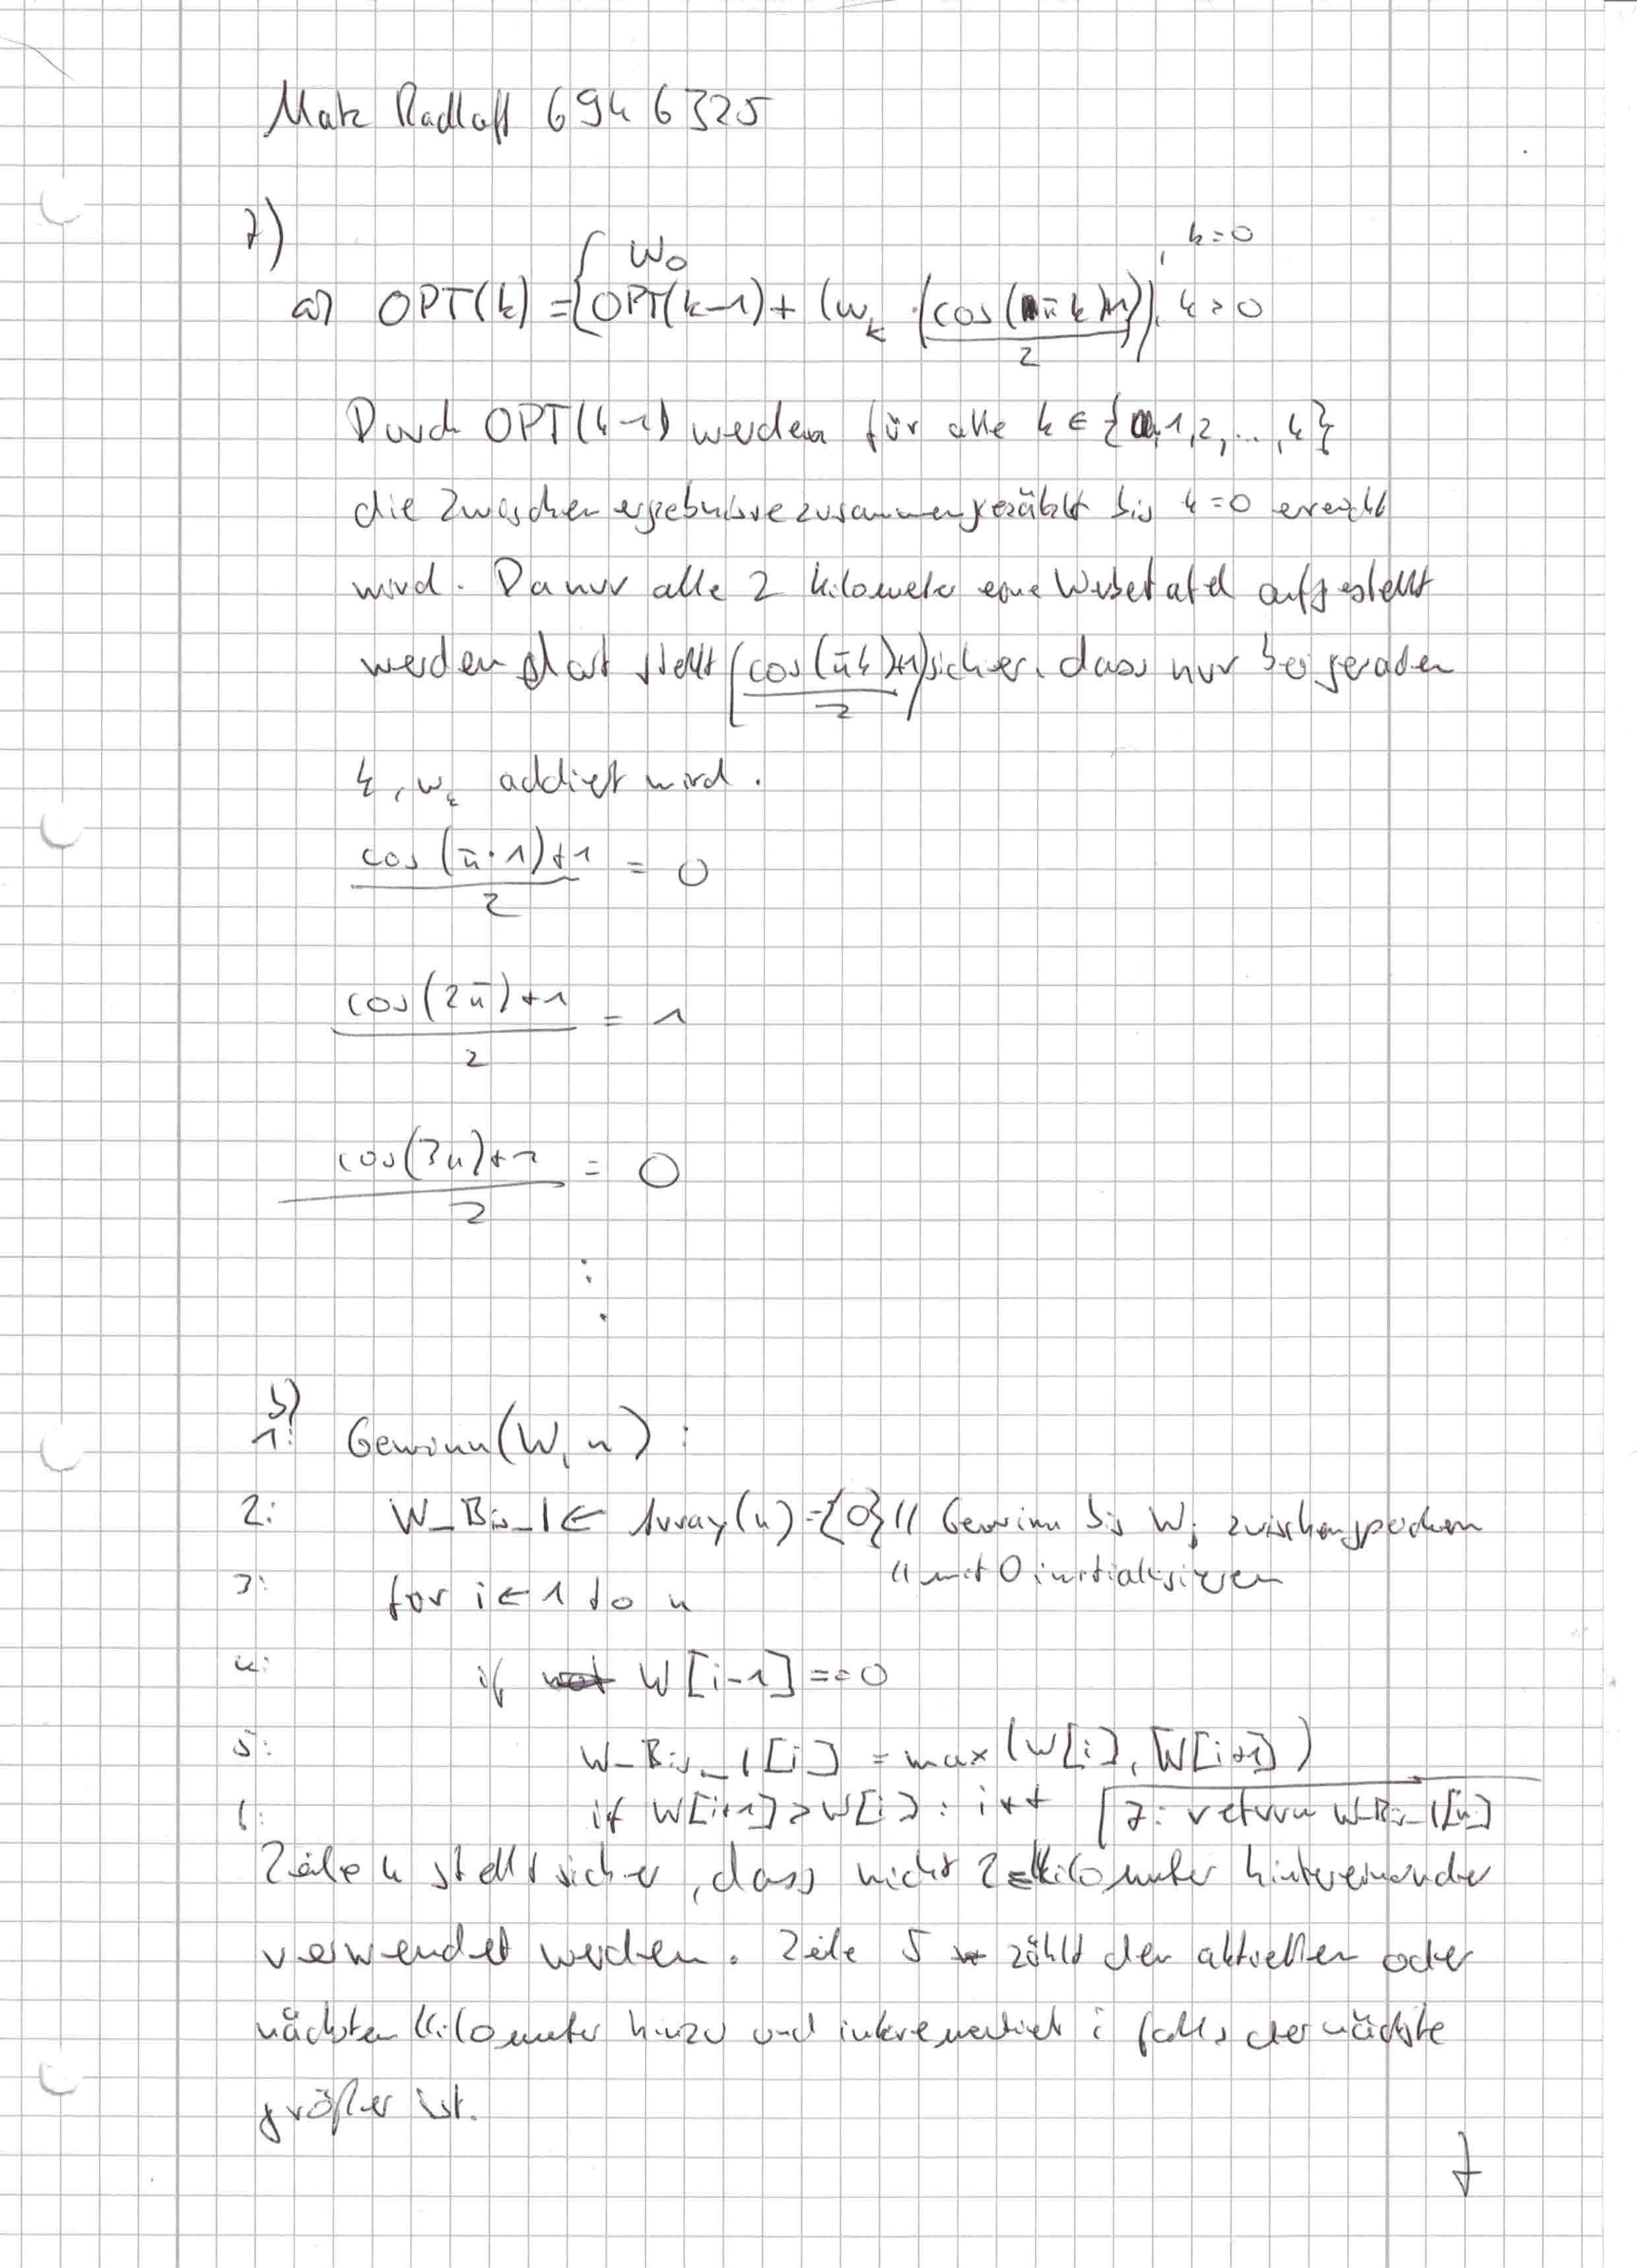 Matz Radloff 6946325
7)
a) OPT(k) = { w₀ , k=0
OPT(k-1) + (w_k · (cos(π k)+1)/2), k>0
Durch OPT(k-1) werden für alle k ∈ {0,1,2,...,k}
die Zwischenergebnisse zusammengezählt bis k=0 erreicht
wird. Da nur alle 2 Kilometer eine Werbetafel aufgestellt
werden darf stellt ((cos(πk)+1)/2) sicher, dass nur bei geraden
k, w_k addiert wird.
(cos(π·1)+1)/2 = 0
(cos(2π)+1)/2 = 1
(cos(3π)+1)/2 = 0
⋮
b)
1: Gewinn(W, n):
2: W_Bis_I ← Array(n) = {0} // Gewinn bis W_i zwischenspeichern
// mit 0 initialisieren
3: for i ← 1 to n
4: if W[i-1] == 0
5: W_Bis_I[i] = max(W[i], W[i+1])
6: if W[i+1] > W[i]: i++
7: return W_Bis_I[n]
Zeile 4 stellt sicher, dass nicht 2 Kilometer hintereinander
verwendet werden. Zeile 5 zählt den aktuellen oder
nächsten Kilometer hinzu und inkrementiert i falls der nächste
größer ist.
7